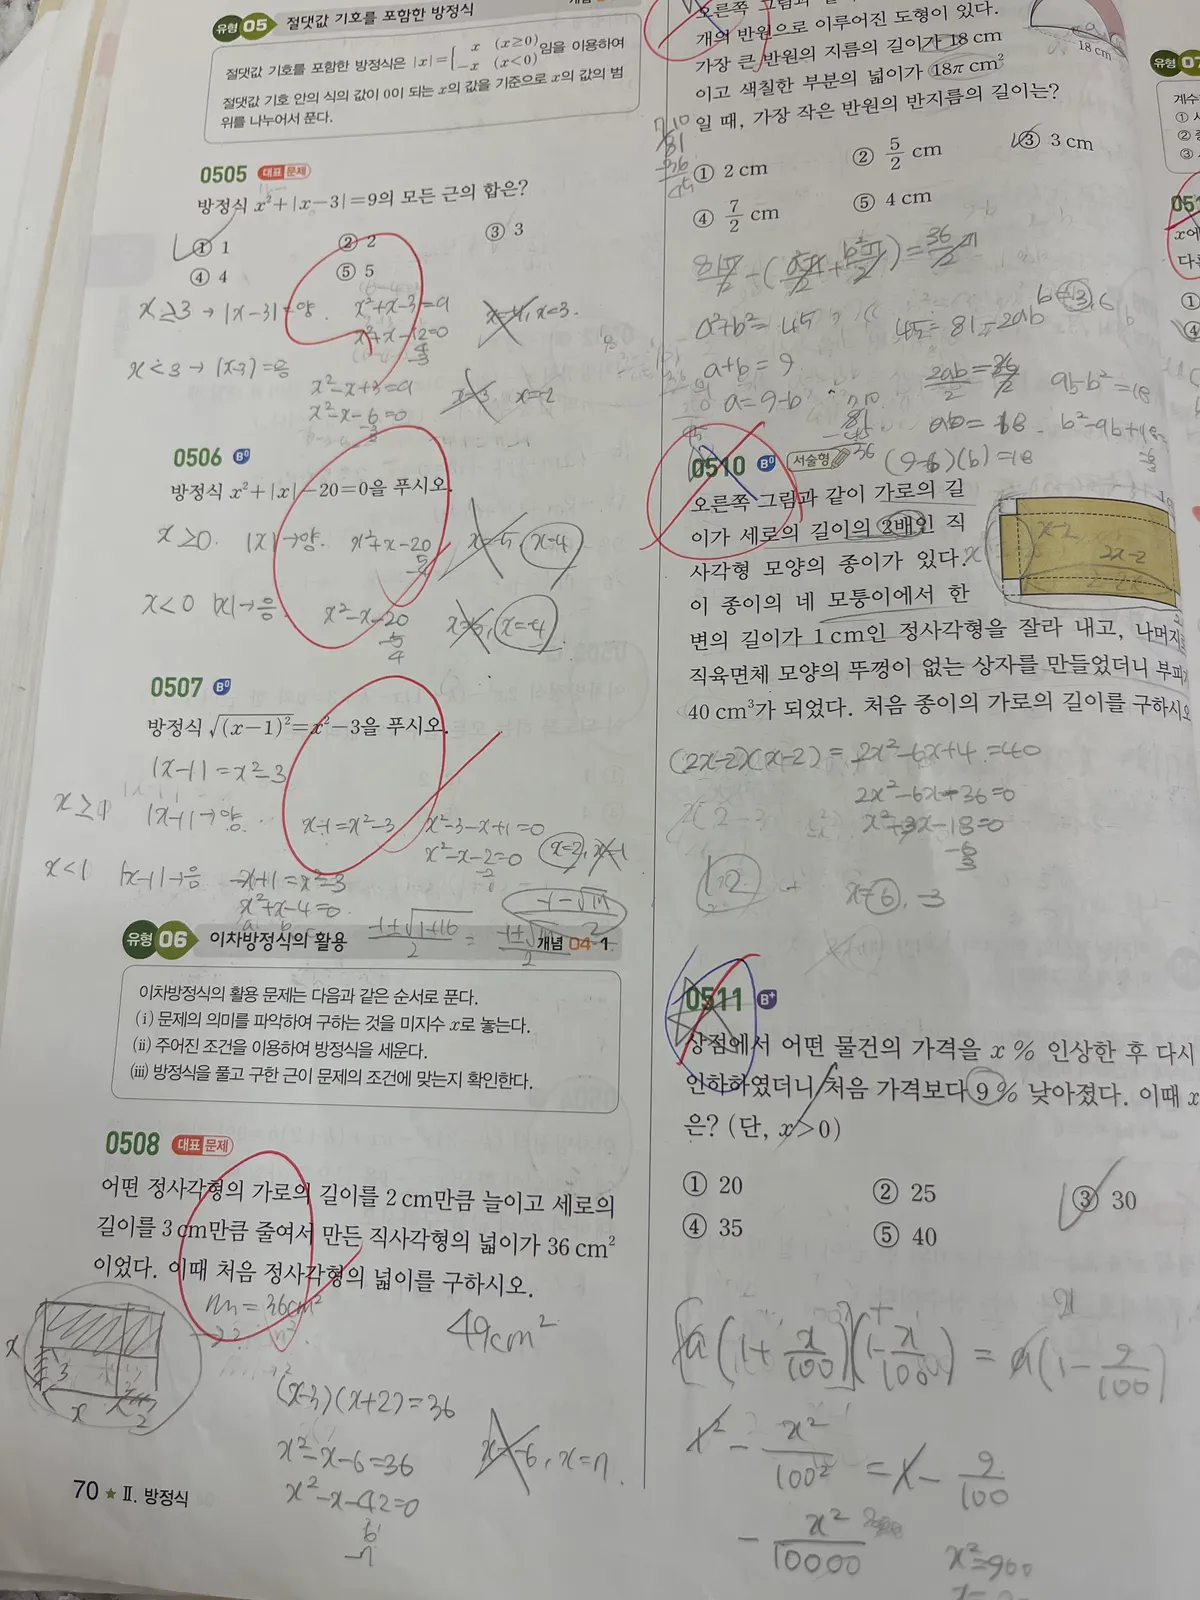 유형 05 절댓값 기호를 포함한 방정식
절댓값 기호를 포함한 방정식은 |x|={ x (x≥0) -x (x<0) 임을 이용하여
절댓값 기호 안의 식의 값이 0이 되는 x의 값을 기준으로 x의 값의 범
위를 나누어서 푼다.
0505 대표 문제
방정식 x²+|x-3|=9의 모든 근의 합은?
① 1 ② 2 ③ 3
④ 4 ⑤ 5
x≥3 → |x-3|=양. x²+x-3=9 x=-4, x=3.
x²+x-12=0
4
-3
x<3 → |x-3|=음 x²-x+3=9 x=3 x=-2
x²-x-6=0
-3
0506 B⁰
방정식 x²+|x|-20=0을 푸시오.
x≥0. |x|→양. x²+x-20 x=-5, x=4
5
-4
x<0 |x|→음. x²-x-20 x=5, x=-4
-5
4
0507 B⁰
방정식 √(x-1)²=x²-3을 푸시오.
|x-1|=x²-3
x≥1 |x-1|→양. x-1=x²-3 x²-3-x+1=0
x²-x-2=0 x=2, x=-1
x<1 |x-1|→음 -x+1=x²-3
x²+x-4=0
-1±√1+16 / 2 =
유형 06 이차방정식의 활용 개념 04-1
이차방정식의 활용 문제는 다음과 같은 순서로 푼다.
(ⅰ) 문제의 의미를 파악하여 구하는 것을 미지수 x로 놓는다.
(ⅱ) 주어진 조건을 이용하여 방정식을 세운다.
(ⅲ) 방정식을 풀고 구한 근이 문제의 조건에 맞는지 확인한다.
0508 대표 문제
어떤 정사각형의 가로의 길이를 2 cm만큼 늘이고 세로의
길이를 3 cm만큼 줄여서 만든 직사각형의 넓이가 36 cm²
이었다. 이때 처음 정사각형의 넓이를 구하시오.
= 36cm²
49cm²
x 3 x 2
(x-3)(x+2)=36
x²-x-6=36 x=-6, x=7.
x²-x-42=0
6
-7
70 ★ Ⅱ. 방정식
오른쪽 그림과
개의 반원으로 이루어진 도형이 있다.
가장 큰 반원의 지름의 길이가 18 cm
이고 색칠한 부분의 넓이가 18π cm²
일 때, 가장 작은 반원의 반지름의 길이는?
18 cm
① 2 cm ② 5/2 cm ③ 3 cm
④ 7/2 cm ⑤ 4 cm
7 10
81
-36
45
81π/2 - (a²π/2 + b²π/2) = 36/2 π
a²+b²=45
45=81-2ab
b=3, 6
a+b=9
a=9-b
2ab/2=36/2
ab=18
9b-b²=18
b²-9b+18=
(9-b)(b)=18
81
-45
36
0510 B⁰ 서술형
오른쪽 그림과 같이 가로의 길
이가 세로의 길이의 2배인 직
사각형 모양의 종이가 있다.
이 종이의 네 모퉁이에서 한
변의 길이가 1 cm인 정사각형을 잘라 내고, 나머지로
직육면체 모양의 뚜껑이 없는 상자를 만들었더니 부피가
40 cm³가 되었다. 처음 종이의 가로의 길이를 구하시오
x x-2
2x-2
(2x-2)(x-2) = 2x²-6x+4 =40
2x²-6x-36=0
x²-3x-18=0
-6
3
12
x=6, -3
0511 B⁺
상점에서 어떤 물건의 가격을 x % 인상한 후 다시
인하하였더니 처음 가격보다 9 % 낮아졌다. 이때 x
은? (단, x>0)
① 20 ② 25 ③ 30
④ 35 ⑤ 40
a(1+x/100)(1-x/100) = a(1-9/100)
- x²/100² = - 9/100
- x²/10000
x²=900
유형 07
① ② ③